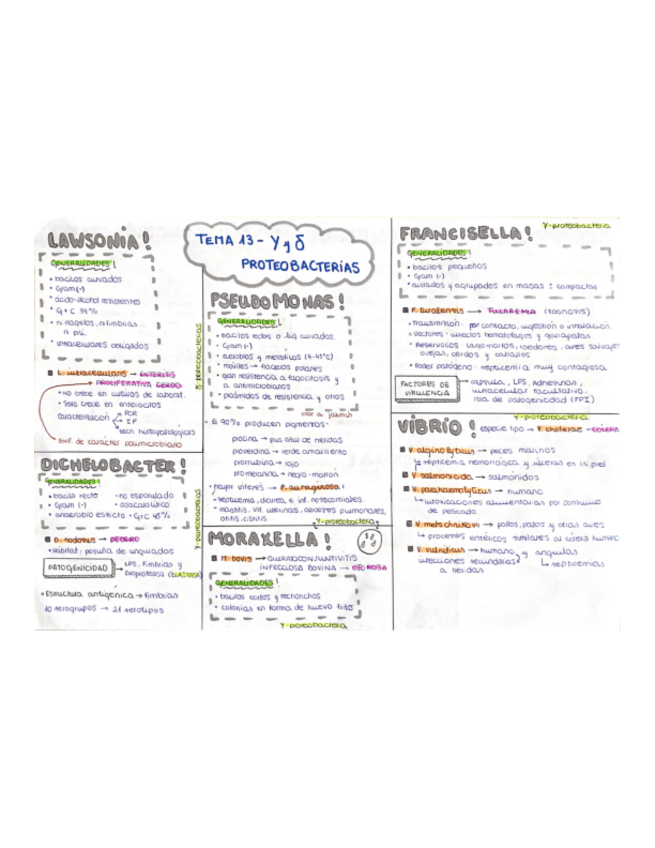 TEMA 13 - γ y δ
PROTEOBACTERIAS
LAWSONIA!
GENERALIDADES!
• bacilos curvados
• Gram(-)
• ácido-alcohol resistentes
• G + C
• n flagelos, n fimbrias
n pili
• intracelulares obligados
L. intracellularis → ENTERITIS
PROLIFERATIVA CERDO
• no crece en cultivos de laborat.
• Solo crece en enterocitos
PCR
IF
tecn. histopatológicas
Enf. de carácter polimicrobiano
δ-proteobacterias
DICHELOBACTER!
GENERALIDADES!
• bacilo recto • no esporulado
• Gram (-)
• anaerobio estricto • G+C 45%
D. nodosus → PEDERO
• Hábitat: pezuña de ungulados
PATOGENICIDAD → LPS, fimbrias y
proteasa (ELASTICA)
• Estructura antigénica → fimbrias
10 serogrupos → 21 serotipos
γ-proteobacterias
PSEUDOMONAS!
GENERALIDADES!
• bacilos rectos o lig curvados
• Gram (-)
• aerobios y mesófilas (4-41°C)
• móviles → flagelos polares
• gran resistencia a fagocitosis y
a antimicrobianos
• plásmidos de resistencia y otros
• El 90% producen pigmentos-
piocina → pus azul de heridas
pioverdina → verde amarillento
piorrubina → rojo
piomelanina → negro-marrón
• Mayor interés → P. aeruginosa:
- septicemia, diarrea e inf. nosocomiales
- mastitis, inf uterinas, abscesos pulmonares,
otitis, cistitis
γ-proteobacteria
MORAXELLA!
M. bovis → QUERATOCONJUNTIVITIS
INFECCIOSA BOVINA → OJO ROSA
GENERALIDADES!
• bacilos cortos y rechonchos
• colonias en forma de huevo frito
γ-proteobacteria
FRANCISELLA!
γ-proteobacteria
GENERALIDADES!
• bacilos pequeños
• Gram (-)
• aislados y agrupados en masas ± compactas
F. tularensis → TULAREMIA (zoonosis)
• Transmisión por contacto, ingestión o inhalación
• Vectores- insectos hematófagos y garrapatas
• Reservorios lagomorfos, roedores, aves salvajes
ovejas, cerdos y caballos
• Poder patógeno: septicemia muy contagiosa
FACTORES DE
VIRULENCIA
→ cápsula, LPS, adhesinas,
intracelular facultativo,
isla de patogenicidad (FPI)
γ-proteobacteria
VIBRIO! especie tipo → V. cholerae - CÓLERA
V. alginolyticus → peces marinos
septicemia hemorrágica y úlceras en la piel
V. salmonicida → salmónidos
V. parahaemolyticus → humano
intoxicaciones alimentarias por consumo
de pescado
V. metschnikovii → pollos, patos y otras aves
procesos entéricos similares al cólera humano
V. vulnificus → humano y anguilas
infecciones secundarias septicemias
a heridas